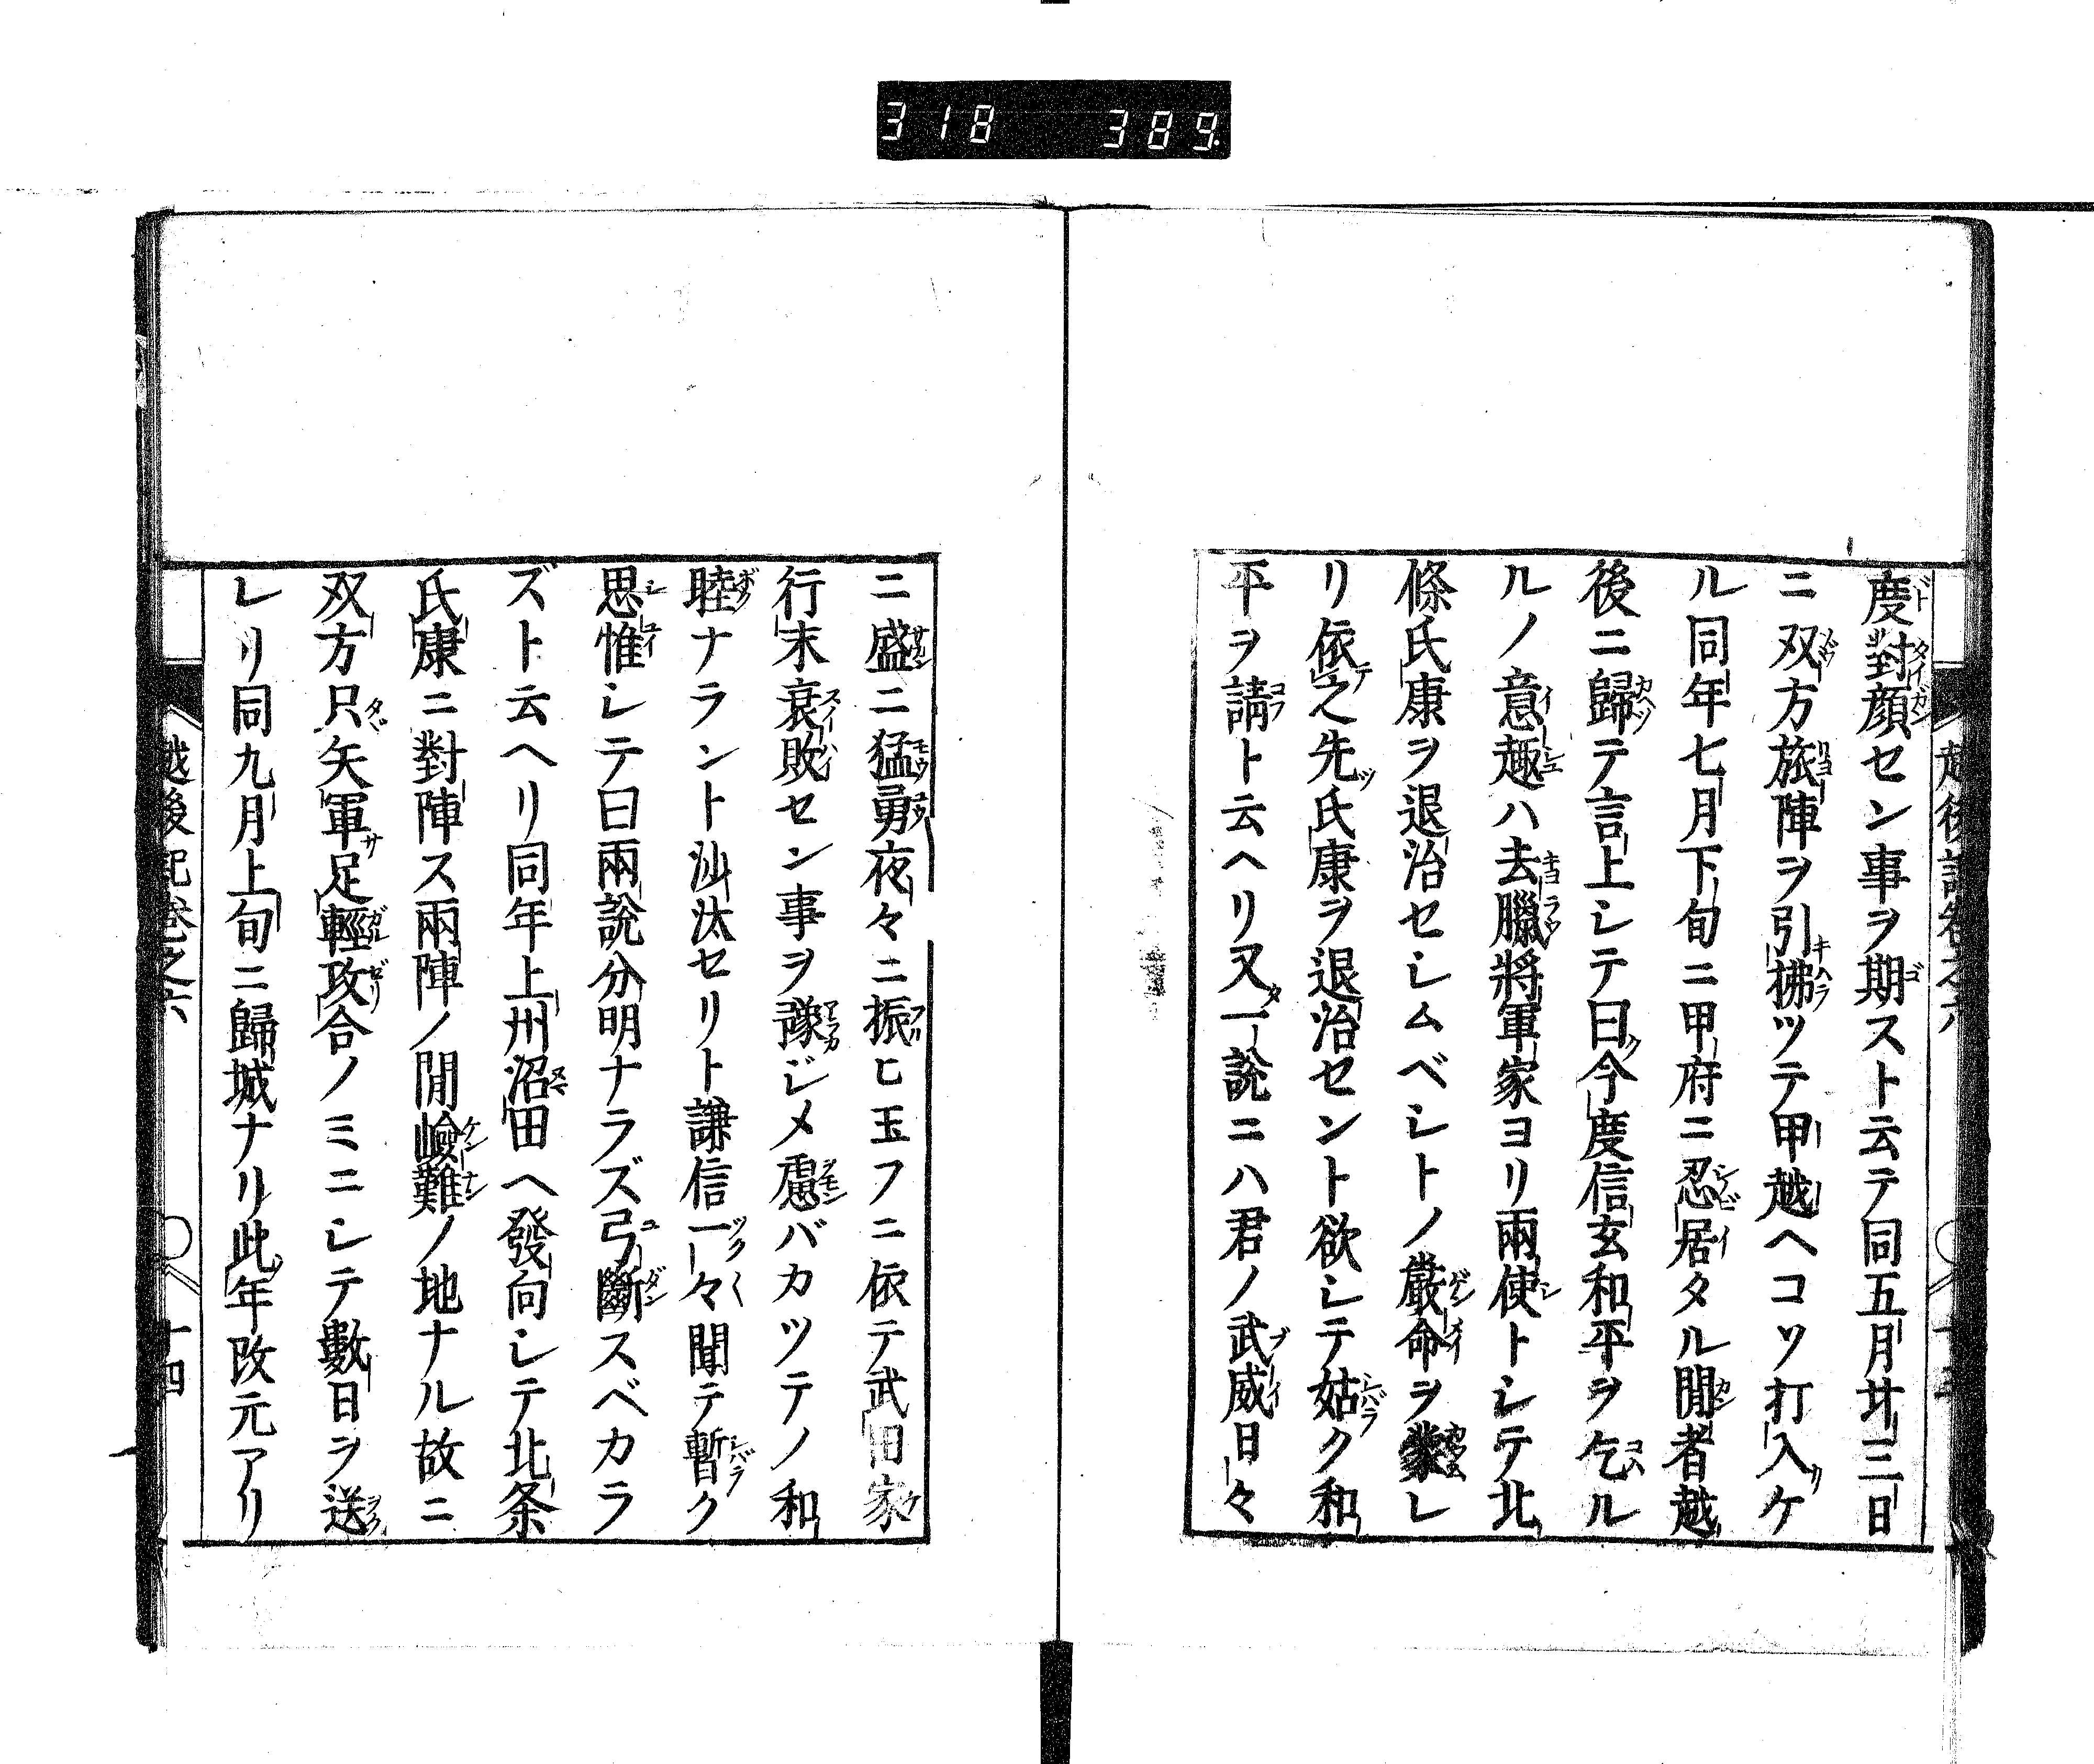 318 389
度對顔セン事ヲ期スト云テ同五月廿三日
ニ双方旅陣ヲ引拂ツテ甲越ヘコソ打入ケ
ル同年七月下旬ニ甲府ニ忍居タル間者越
後ニ歸テ言上シテ曰今度信玄和平ヲ乞ル
ルノ意趣ハ去臘將軍家ヨリ兩使トシテ北
條氏康ヲ退治セシムベシトノ嚴命ヲ蒙レ
リ依之先氏康ヲ退治セント欲シテ姑ク和
平ヲ請ト云ヘリ又一説ニハ君ノ武威日々
ニ盛ニ猛勇夜々ニ振ヒ玉フニ依テ武田家
行末衰敗セン事ヲ豫ジメ慮バカツテノ和
睦ナラント沙汰セリト謙信一々聞テ暫ク
思惟シテ曰兩説分明ナラズ弓斷スベカラ
ズト云ヘリ同年上州沼田ヘ發向シテ北条
氏康ニ對陣ス兩陣ノ間嶮難ノ地ナル故ニ
双方只矢軍足輕攻合ノミニシテ數日ヲ送
レリ同九月上旬ニ歸城ナリ此年改元アリ
越後記巻之六 十四